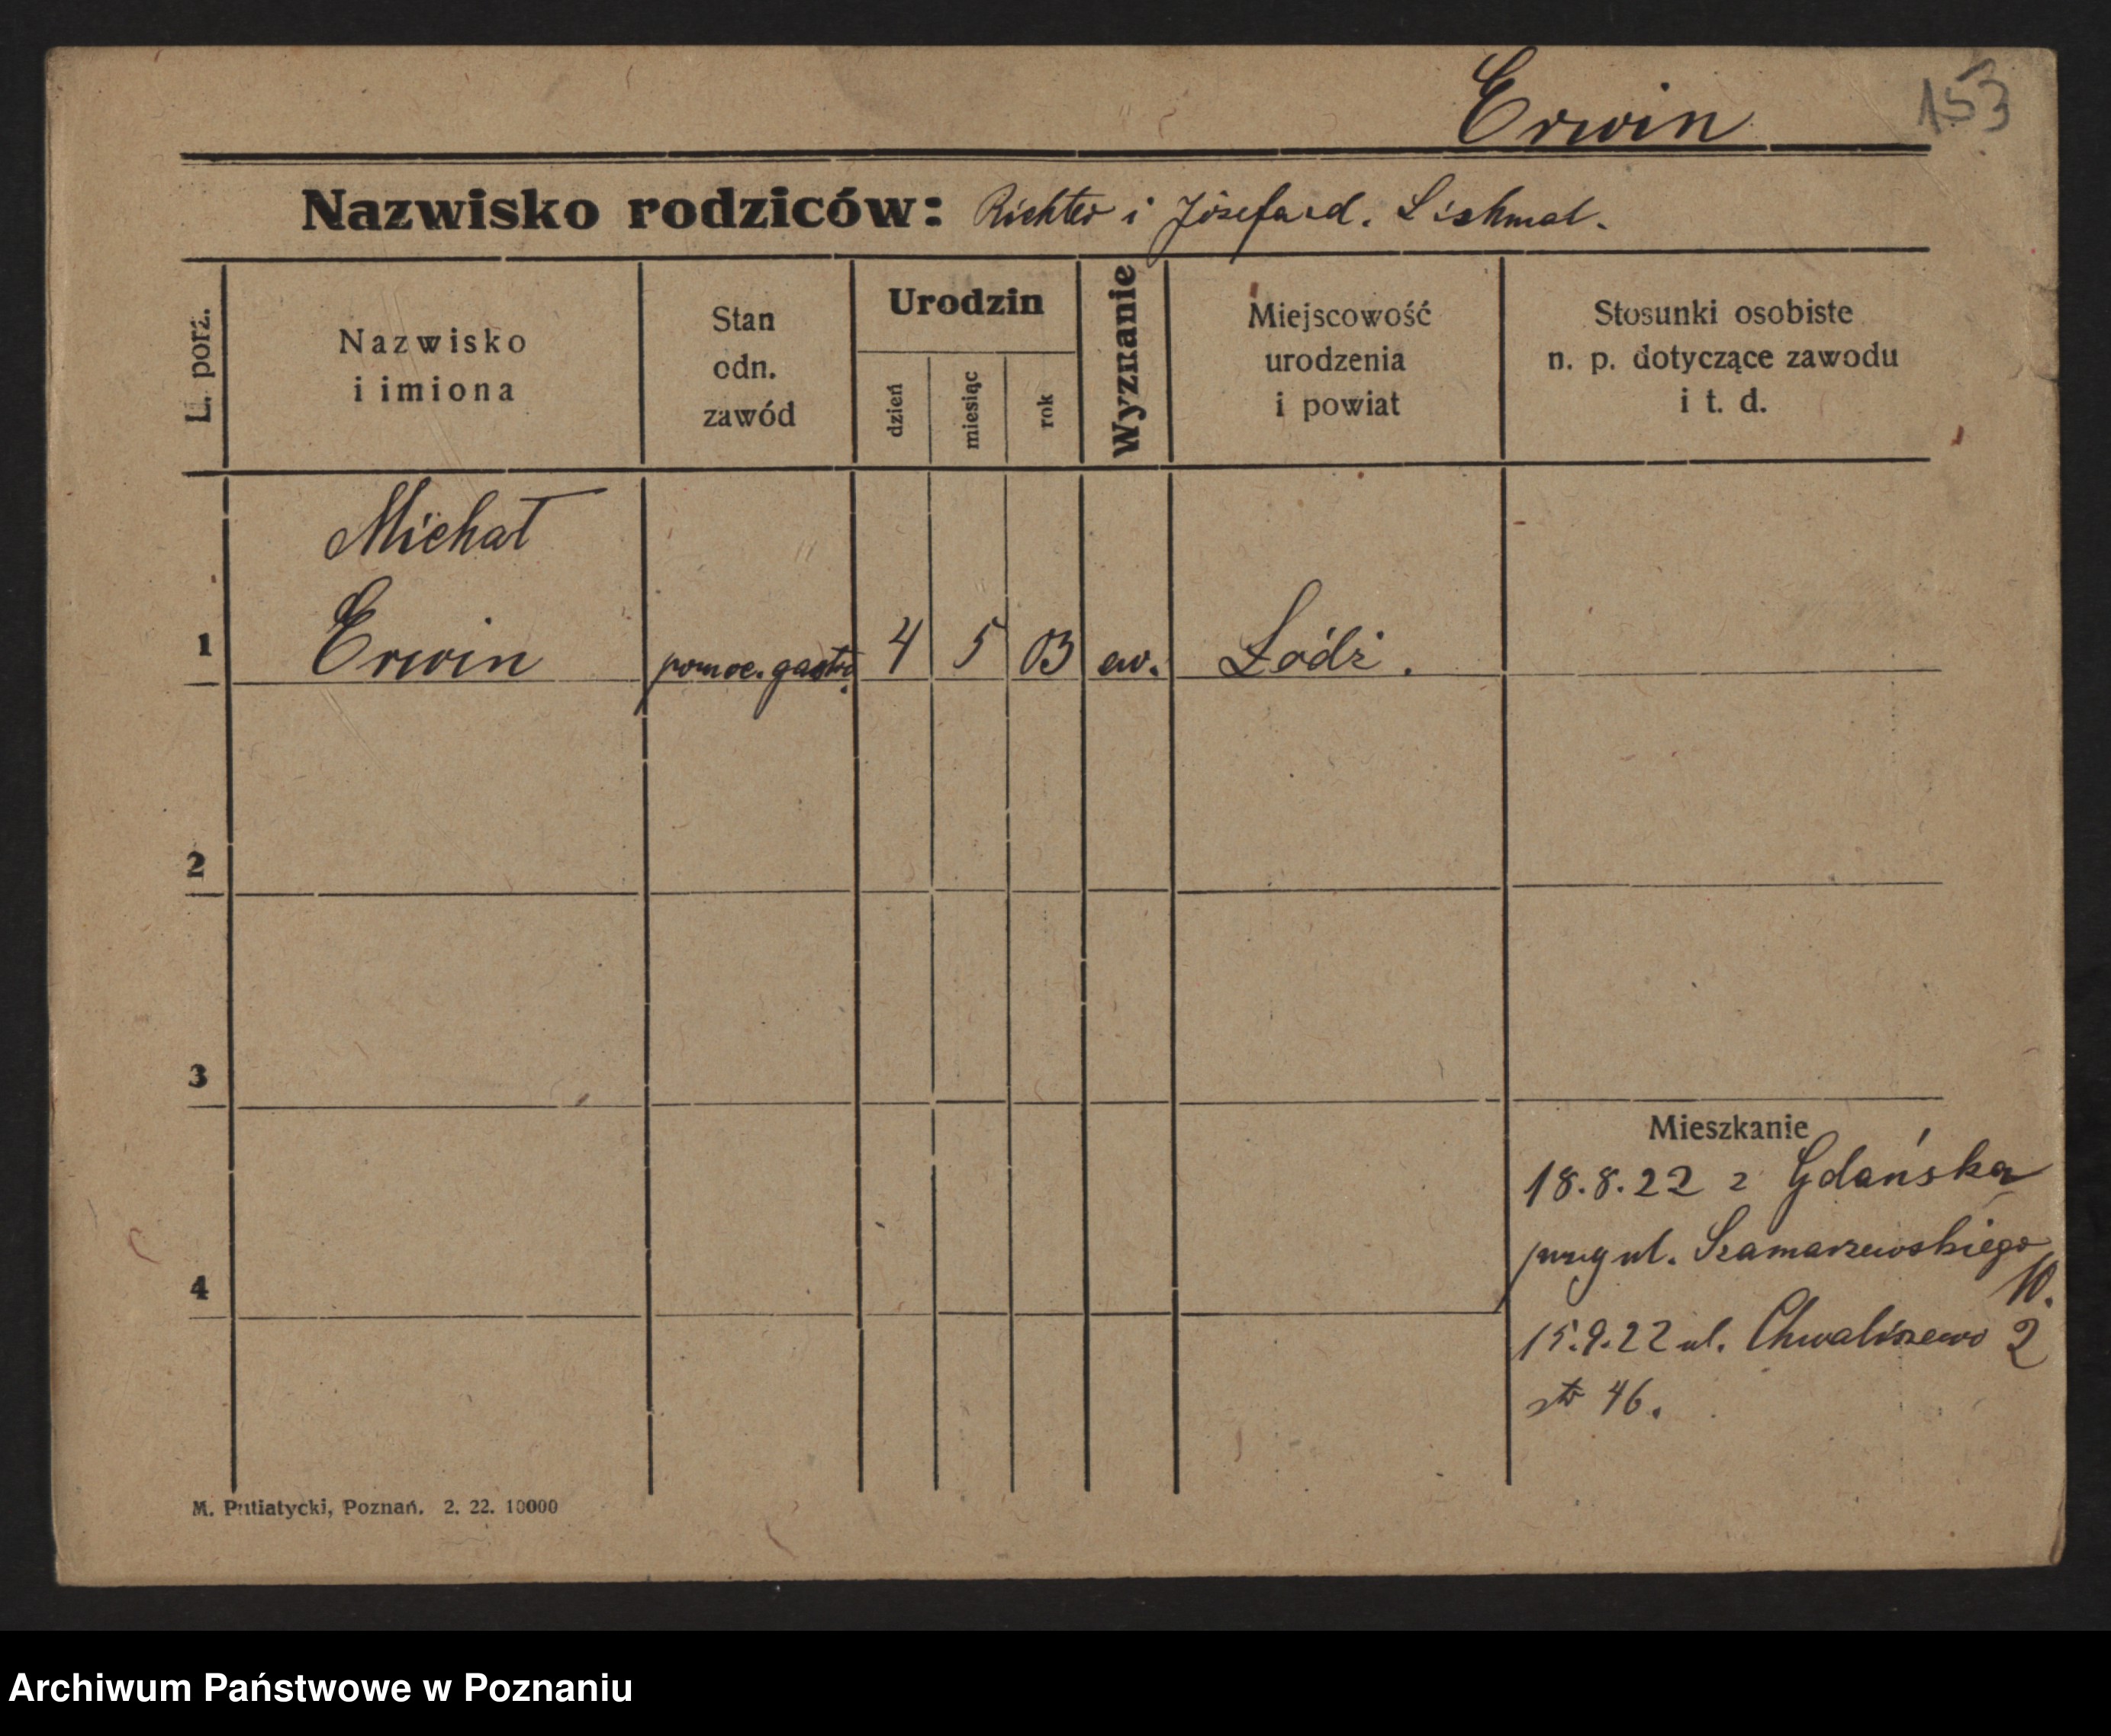 Erwin 153
Nazwisko rodziców: Richter i Józefa z d. Lishmal.
L. porz.
Nazwisko
i imiona
Stan
odn.
zawód
Urodzin
dzień
miesiąc
rok
Wyznanie
Miejscowość
urodzenia
i powiat
Stosunki osobiste
n. p. dotyczące zawodu
i t. d.
Michał
1 Erwin pomoc. gastr. 4 5 03 ew. Łódź.
2
3
Mieszkanie
18.8.22 z Gdańska
przy ul. Szamarzewskiego
10.
4
15.9.22 ul. Chwaliszewo 2
str 46.
M. Putiatycki, Poznań. 2. 22. 10000
Archiwum Państwowe w Poznaniu